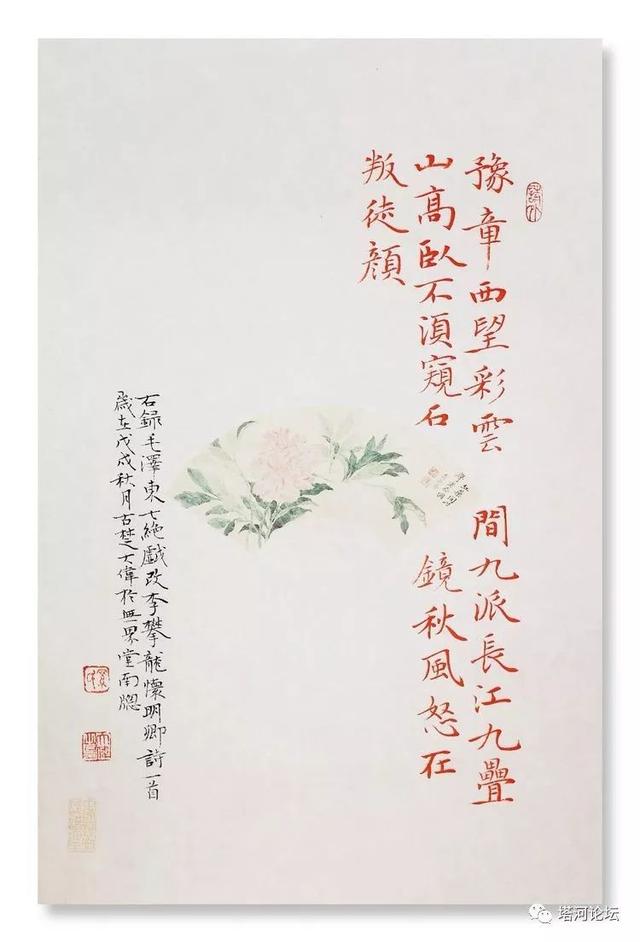 豫章西望彩雲間九派長江九疊
山高臥不湏窺石鏡秋風怒在
叛徒顏
右録毛澤東七絶戯改李攀龍懷明卿詩一首
歲在戊戌秋月古楚大偉於無界堂南窗
塔河论坛